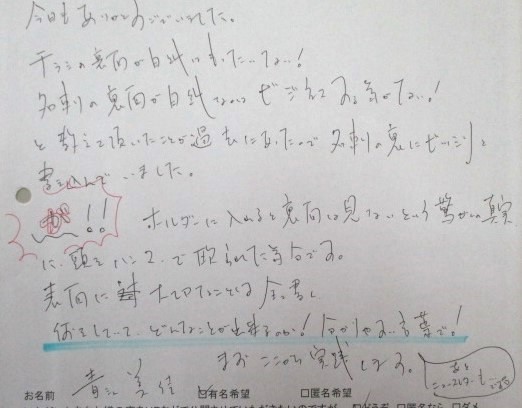 今日もありがとうございました。
チラシの裏面が白紙はもったいない!
名刺の裏面が白紙なのはビジネスする気がない!
と教えて頂いたことが過去にあったので名刺の裏にビッシリと
書き込んでいました。
が!! ホルダーに入れると裏面は見ないという驚がくの真実
に、頭をハンマーで殴られた気分です。
表面に大切なことを全て書く
何をしていて、どんなことが出来るのか!分かりやすい言葉で!
まずここから実践します。
お名前 美 ☑有名希望 □匿名希望